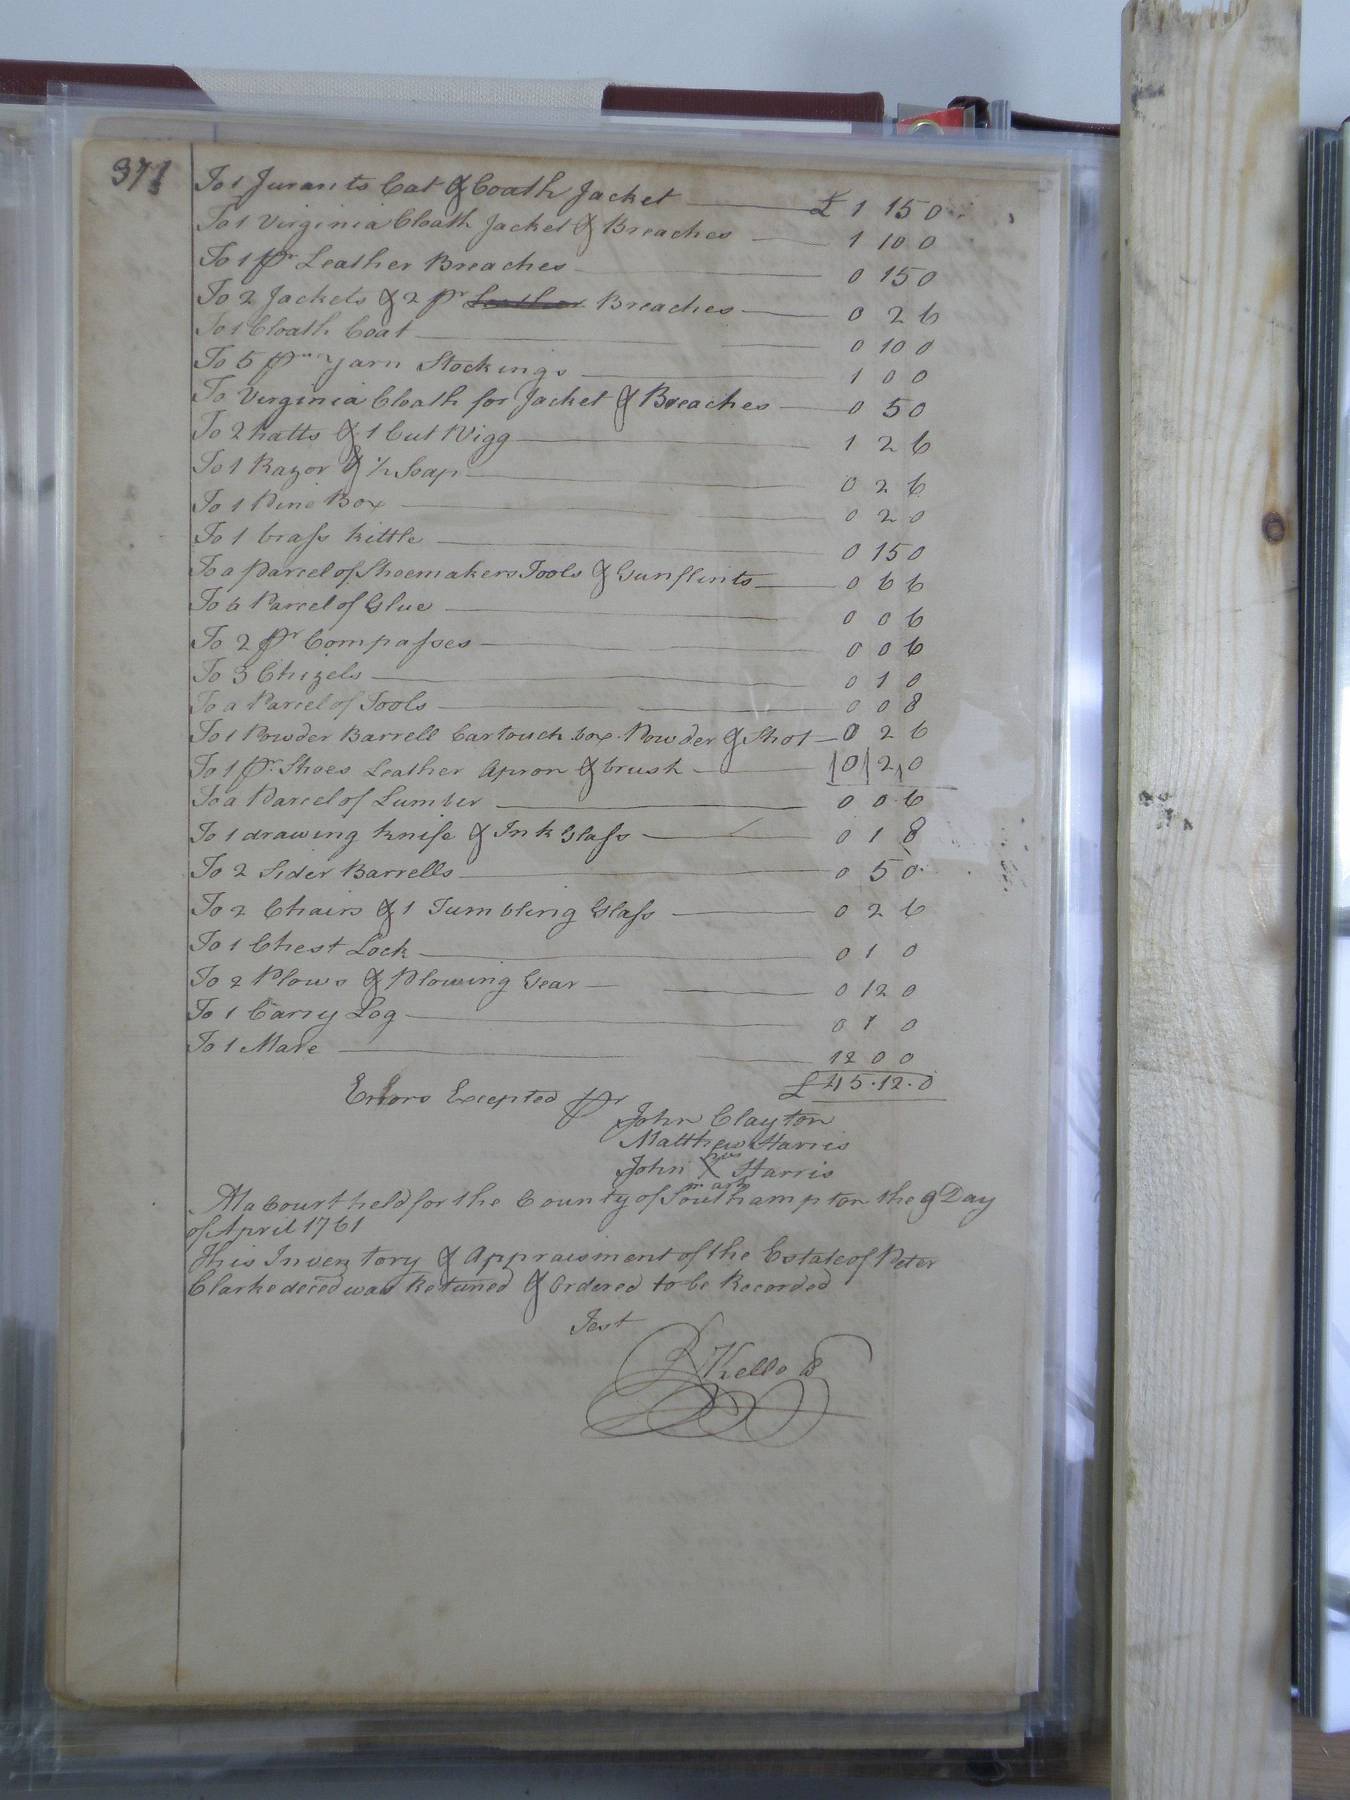 371
To 1 Jurants Cat & Coath Jacket £ 1 15 0
To 1 Virginia Cloath Jacket & Breaches 1 10 0
To 1 pr Leather Breaches 0 15 0
To 2 Jackets & 2 pr Leather Breaches 0 2 6
To 1 Cloath Coat 0 10 0
To 5 pr Yarn Stockings 1 0 0
To Virginia Cloath for Jacket & Breaches 0 5 0
To 2 hatts & 1 Cut Wigg 1 2 6
To 1 Razor & ½ Soap 0 2 6
To 1 Pine Box 0 2 0
To 1 brass kittle 0 15 0
To a parcel of Shoemakers Tools & Gunflints 0 6 6
To a Parcel of Glue 0 0 6
To 2 pr Compasses 0 0 6
To 3 Chizels 0 1 0
To a Parcel of Tools 0 0 8
To 1 Powder Barrell Cartouch box Powder & Shot 0 2 6
To 1 pr Shoes Leather Apron & brush 0 2 0
To a Parcel of Lumber 0 0 6
To 1 drawing knife & Ink Glass 0 1 8
To 2 Sider Barrells 0 5 0
To 2 Chairs & 1 Tumbling Glass 0 2 6
To 1 Chest Lock 0 1 0
To 2 Plows & Plowing Gear 0 12 0
To 1 Carry Log 0 1 0
To 1 Mare 12 0 0
£ 45.12.0
Errors Excepted pr
John Clayton
Matthew Harris
his
John X Harris
mark
At a Court held for the County of Southampton the 9 Day
of April 1761
This Inventory & Appraisment of the Estate of Peter
Clarke deced was Retuned & Ordered to be Recorded
Test
R Kello